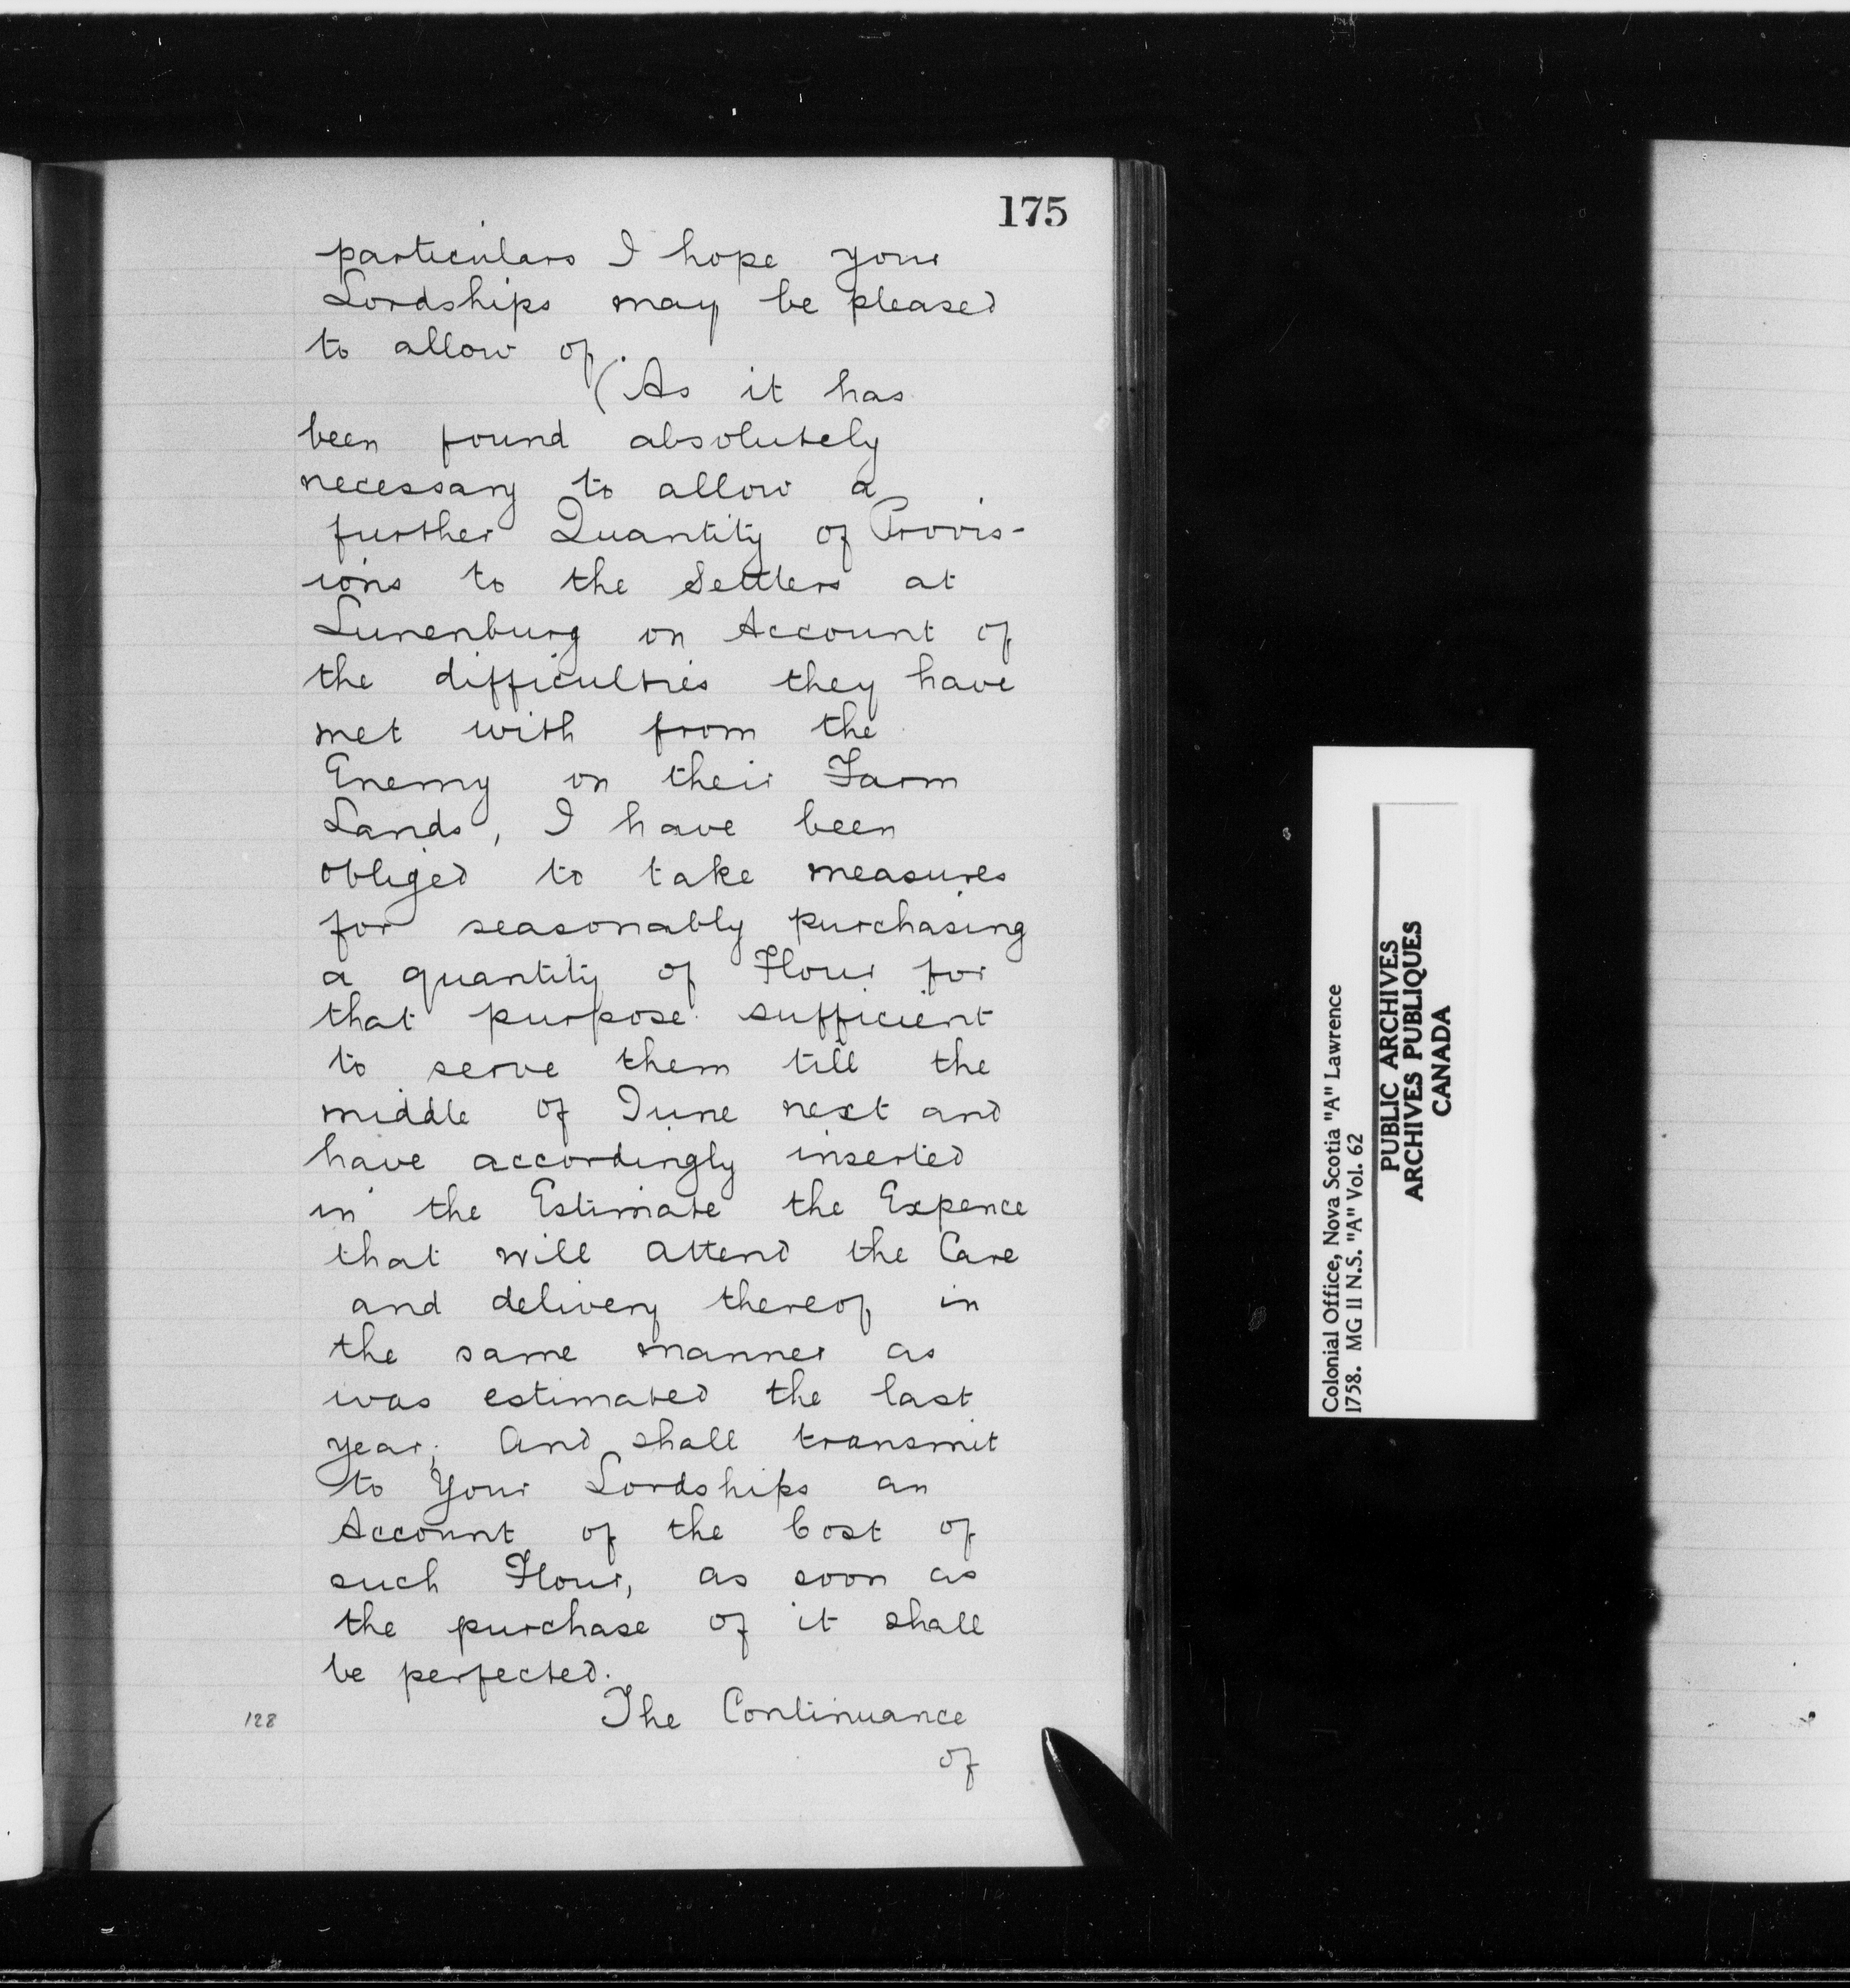 175
particulars I hope your
Lordships may be pleased
to allow of.
(As it has
been found absolutely
necessary to allow a
further Quantity of Provis-
ions to the Settlers at
Lunenburg on Account of
the difficulties they have
met with from the
Enemy on their Farm
Lands, I have been
obliged to take measures
for seasonably purchasing
a quantity of Flour for
that purpose sufficient
to serve them till the
middle of June next and
have accordingly inserted
in the Estimate the Expence
that will attend the Care
and delivery thereof in
the same manner as
was estimated the last
year; And shall transmit
to Your Lordships an
Account of the Cost of
such Flour, as soon as
the purchase of it shall
be perfected.
128 The Continuance
of
Colonial Office, Nova Scotia "A" Lawrence
1758. MG 11 N.S. "A" Vol. 62
PUBLIC ARCHIVES
ARCHIVES PUBLIQUES
CANADA